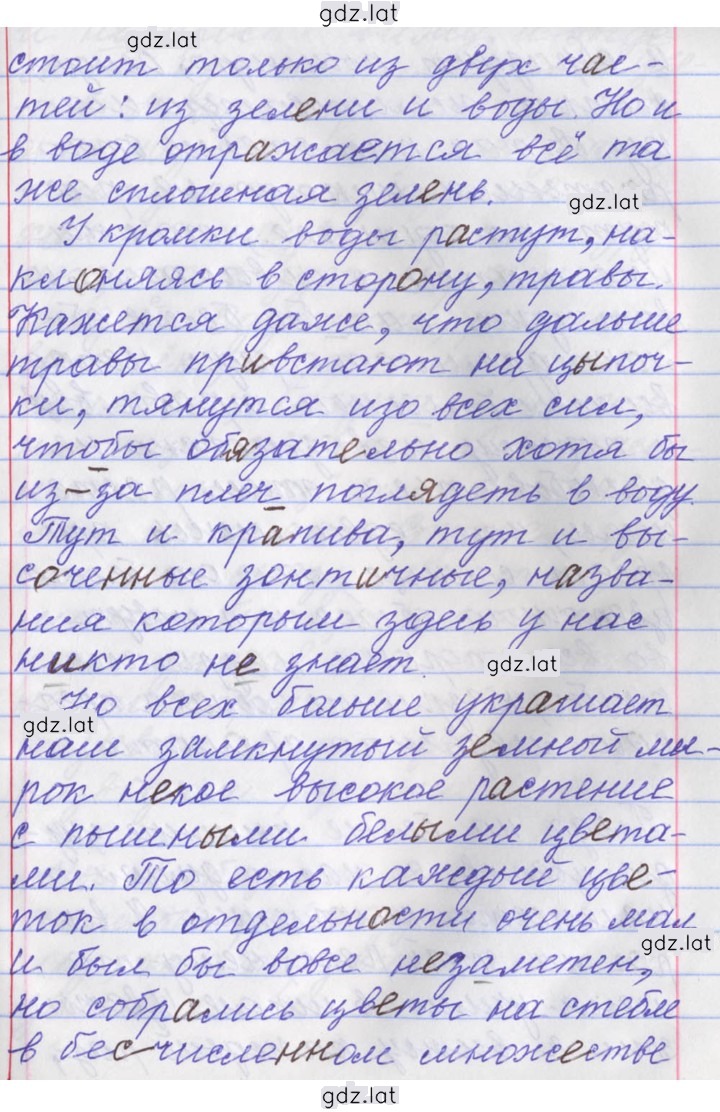 gdz.lat
gdz.lat
стоит только из двух час-
тей: из зелени и воды. Но и
в воде отражается всё та
же сплошная зелень.
gdz.lat
У кромки воды растут, на-
клоняясь в сторону, травы.
Кажется даже, что дальше
травы привстают на цыпоч-
ки, тянутся изо всех сил,
чтобы обязательно хотя бы
из-за плеч поглядеть в воду.
Тут и крапива, тут и вы-
соченные зонтичные, назва-
ния которым здесь у нас
никто не знает.
gdz.lat
Но всех больше украшает
gdz.lat
наш замкнутый земной ми-
рок некое высокое растение
с пышными белыми цвета-
ми. То есть каждый цве-
ток в отдельности очень мал
gdz.lat
и был бы вовсе незаметен,
но собрались цветы на стебле
в бесчисленном множестве
gdz.lat